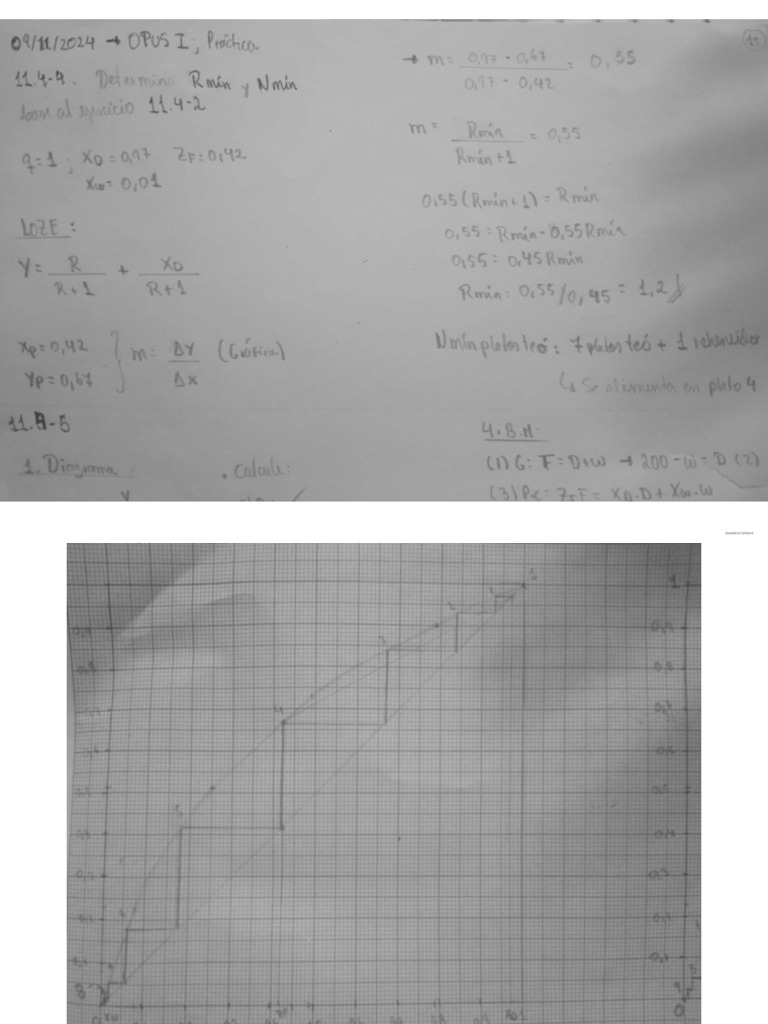 09/11/2024 → OPUS I; Práctica
11.4-4. Determine Rmín y Nmín
base al ejercicio 11.4-2
q=1; XD=0,97 ZF=0,42
Xw=0,01
LOZE:
Y= R/R+1 + XD/R+1
Xp=0,42
Yp=0,67
m= ΔY/ΔX (Gráfica)
11.4-5
1. Diagrama
• Calcule:
11
→ m= 0,97-0,67/0,97-0,42 = 0,55
m= Rmín/Rmín+1 = 0,55
0,55(Rmín+1)=Rmín
0,55=Rmín-0,55Rmín
0,55=0,45Rmín
Rmín: 0,55/0,45=1,2
Nmín platos teó: 7 platos teó + 1 rehervidor
↳ Se alimenta en plato 4
4. B.M:
(1) G: F=D+W → 200-W=D (2)
(3) P.C: ZF.F= XD.D+Xw.W
1
0,9
0,8
0,7
0,6
0,5
0,4
0,3
0,2
0,1
0
2
3
4
5
6
7
8